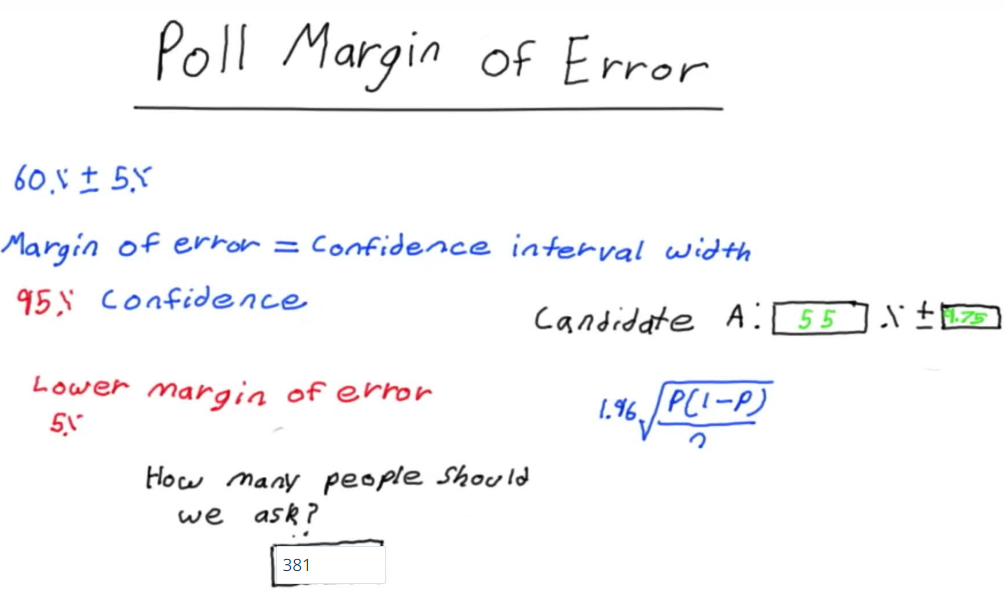 Poll Margin of Error
60% ± 5%
Margin of error = Confidence interval width
95% Confidence
Candidate A: 55 % ± 9.75
Lower margin of error
5%
1.96 √(P(1-P)/?)
How many people should
we ask?
381